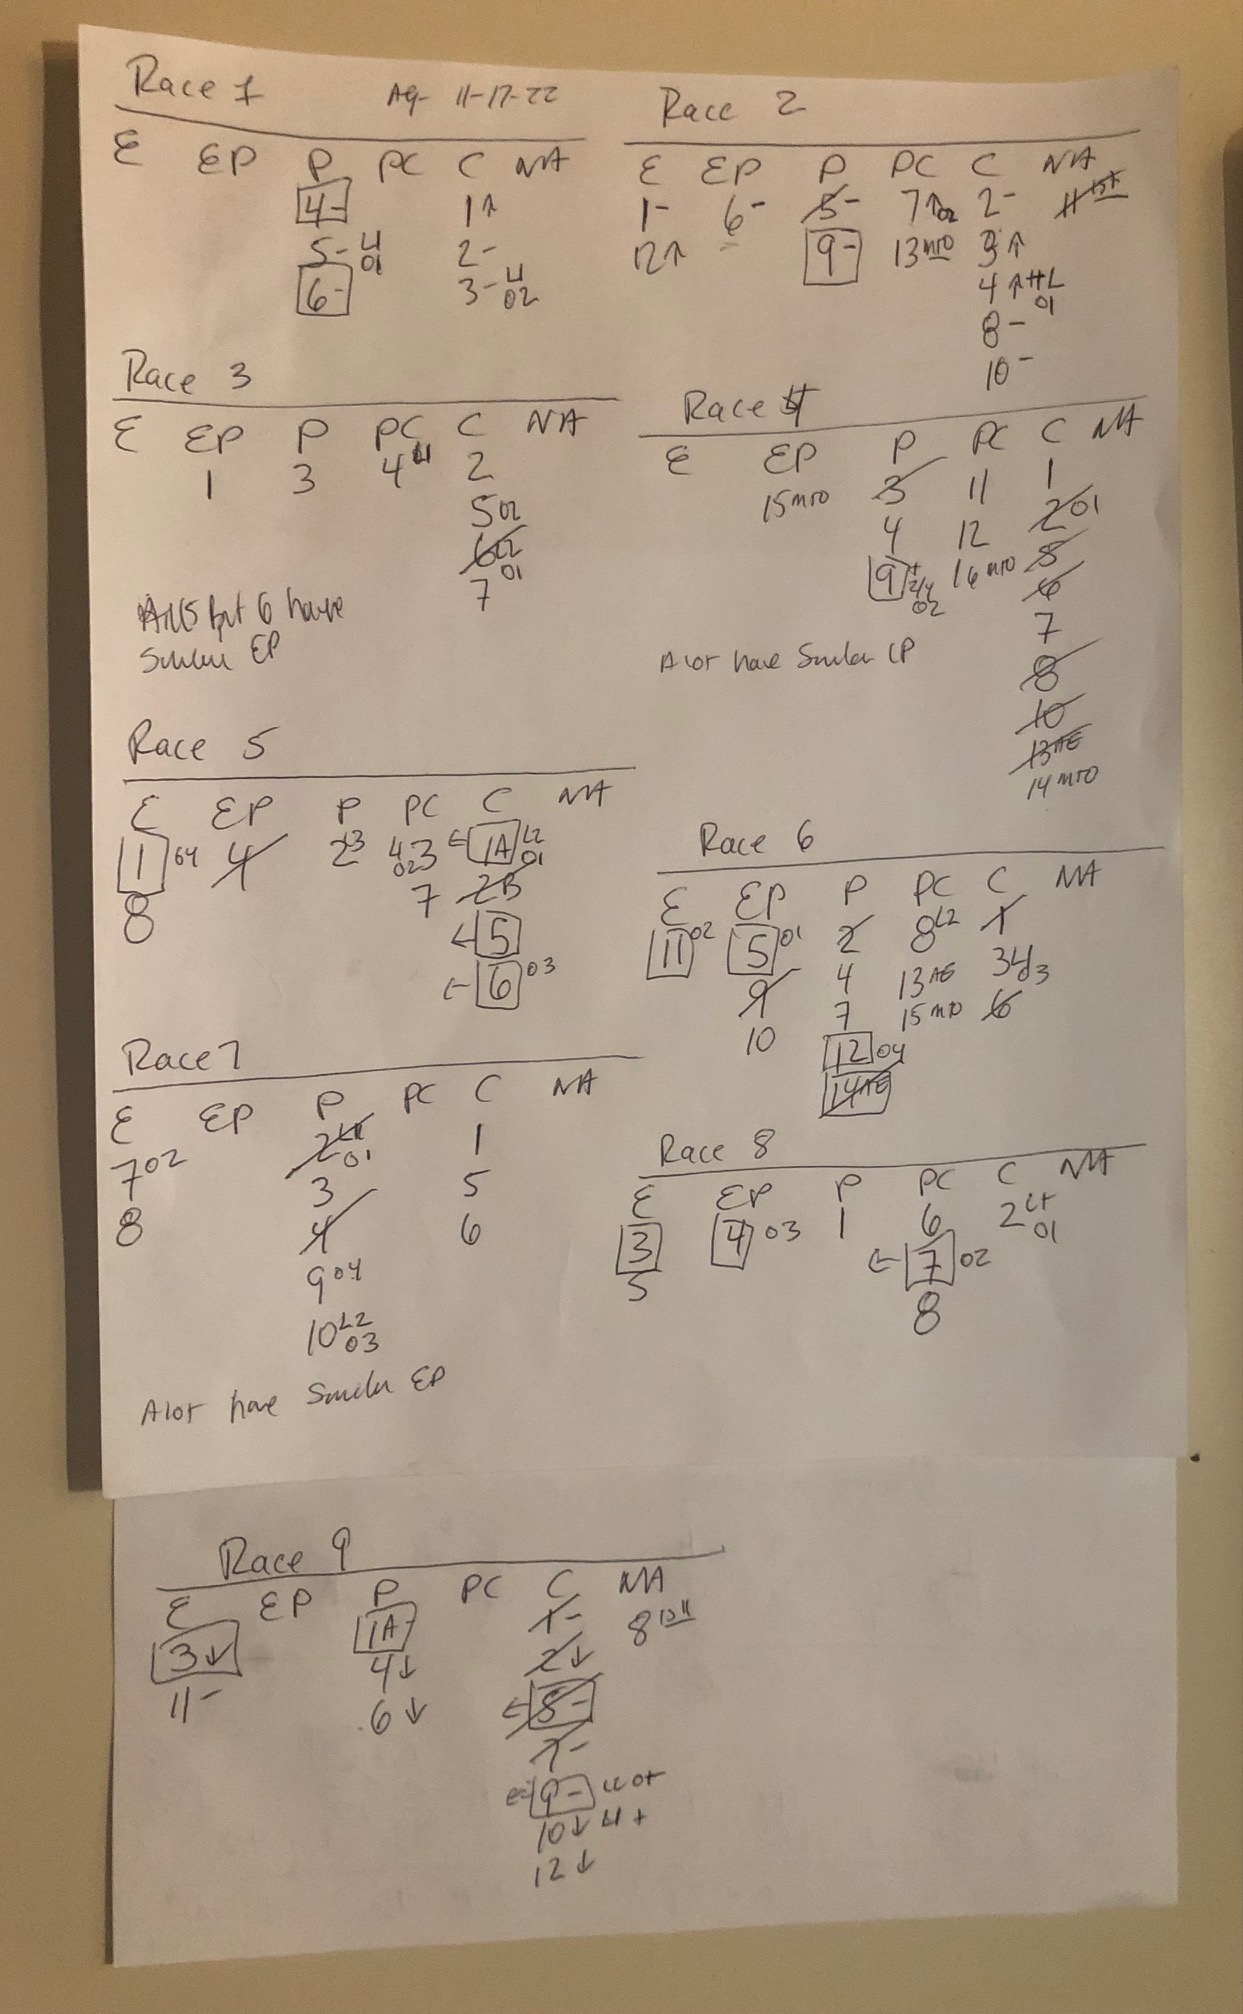 Race 1 AQ- 11-17-22
E EP P PC C NA
4- 1↑
5- L1 01 2-
6- 3- L1 02
Race 2
E EP P PC C NA
1- 6- 5- 7↑02 2-
12↑ 9- 13MTO 3↑
4↑ 01
8-
10-
Race 3
E EP P PC C NA
1 3 4L1 2
502
6L2
7 01
But 6 have
Similar EP
Race 4
E EP P PC C NA
15MTO 3 11 1
4 12 201
9 02 16MTO 5
6
7
8
10
13AE
14MTO
A lot have Similar
Race 5
E EP P PC C NA
1 04 4 2 3 1A L2 01
8 7 2B
←5
←6 03
Race 6
E EP P PC C NA
11 02 5 01 2 8L2 1
9 4 13AE 3
10 7 15MTO 6
12 04
14AE
Race 7
E EP P PC C NA
702 2 01 1
8 3 5
4 6
904
10L2 03
A lot have Similar EP
Race 8
E EP P PC C NA
3 4 03 1 6 2 01
5 ←7 02
8
Race 9
E EP P PC C NA
3↓ 1A- 1- 8
11- 4↓ 2↓
6↓ ←8-
7-
9-
10↓ L1 +
12↓